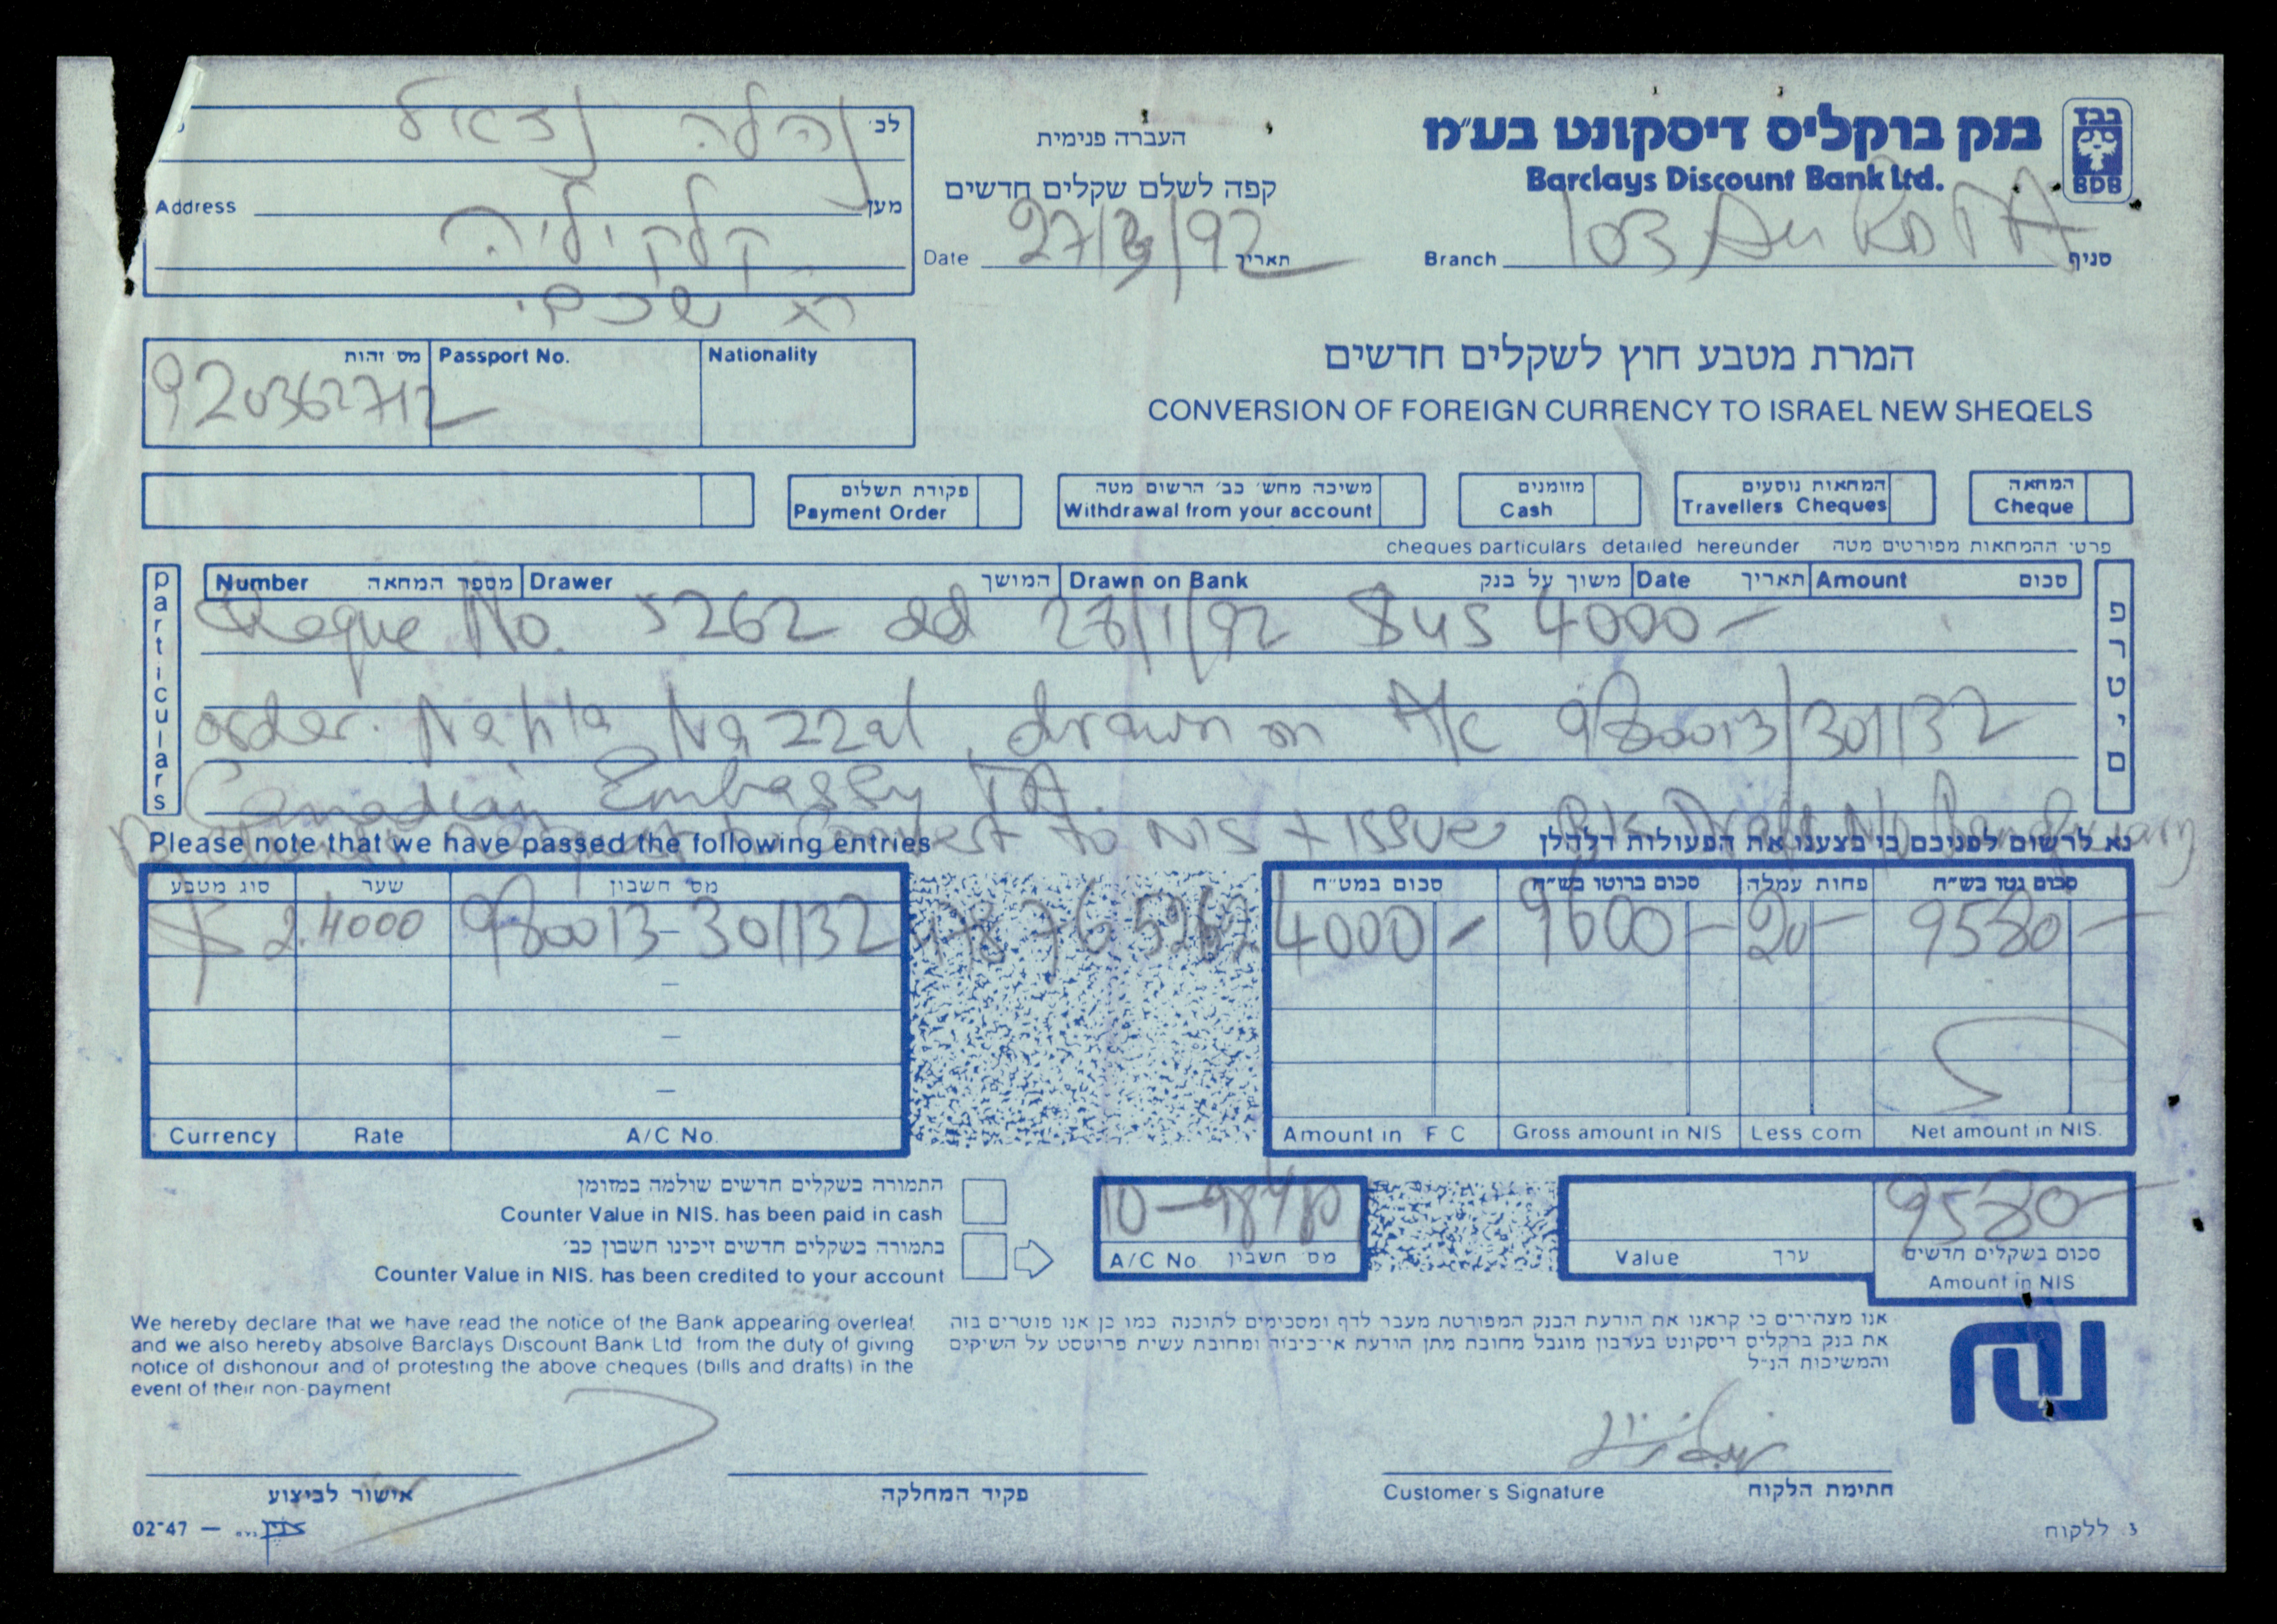 בנק ברקליס דיסקונט בע״מ
Barclays Discount Bank Ltd.
בבד
BDB
העברה פנימית
קפה לשלם שקלים חדשים
לכ׳ נהלה נזאל
Address מען
קלקיליה
שכם
Date 27/3/92 תאריך
Branch 103 סניף
מס׳ זהות Passport No. Nationality
920362712
המרת מטבע חוץ לשקלים חדשים
CONVERSION OF FOREIGN CURRENCY TO ISRAEL NEW SHEQELS
פקודת תשלום
Payment Order
משיכה מחש׳ כב׳ הרשום מטה
Withdrawal from your account
מזומנים
Cash
המחאות נוסעים
Travellers Cheques
המחאה
Cheque
cheques particulars detailed hereunder פרטי ההמחאות מפורטים מטה
particulars
פרטים
Number מספר המחאה Drawer המושך Drawn on Bank משוך על בנק Date תאריך Amount סכום
Cheque No. 5262 dd 28/1/92 $us 4000-
order. Nahla Nazzal drawn on A/c 980013/301132
Canadian Embassy TA.
request to Convert to NIS + issue
Please note that we have passed the following entries נא לרשום לפניכם כי בצענו את הפעולות דלהלן
סוג מטבע שער מס׳ חשבון סכום במט״ח סכום ברוטו בש״ח פחות עמלה סכום נטו בש״ח
$ 2.4000 980013-301132 4000- 9600- 20- 9580-
Currency Rate A/C No. Amount in F C Gross amount in NIS Less com Net amount in NIS.
התמורה בשקלים חדשים שולמה במזומן
Counter Value in NIS. has been paid in cash
בתמורה בשקלים חדשים זיכינו חשבון כב׳
Counter Value in NIS. has been credited to your account
10-98480
A/C No. מס׳ חשבון
Value ערך
9580-
סכום בשקלים חדשים
Amount in NIS
We hereby declare that we have read the notice of the Bank appearing overleaf
and we also hereby absolve Barclays Discount Bank Ltd from the duty of giving
notice of dishonour and of protesting the above cheques (bills and drafts) in the
event of their non-payment
אנו מצהירים כי קראנו את הודעת הבנק המפורטת מעבר לדף ומסכימים לתוכנה כמו כן אנו פוטרים בזה
את בנק ברקליס דיסקונט בערבון מוגבל מחובת מתן הודעת אי־כיבוד ומחובת עשית פרוטסט על השיקים
והמשיכות הנ״ל
אישור לביצוע
פקיד המחלקה
Customer's Signature חתימת הלקוח
02-47 —
3 ללקוח